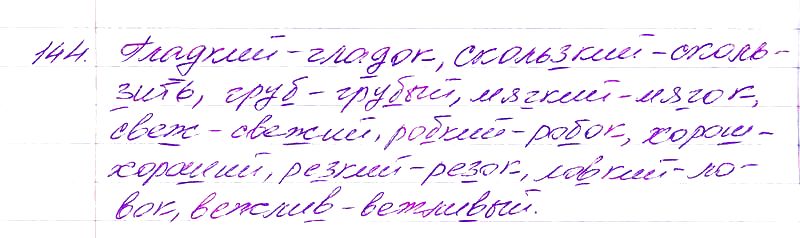 144. Гладкий – гладок, скользкий – сколь-
зить, груб – грубый, мягкий – мягок,
свеж – свежий, робкий – робок, хорош –
хороший, резкий – резок, ловкий – ло-
вок, вежлив – вежливый.